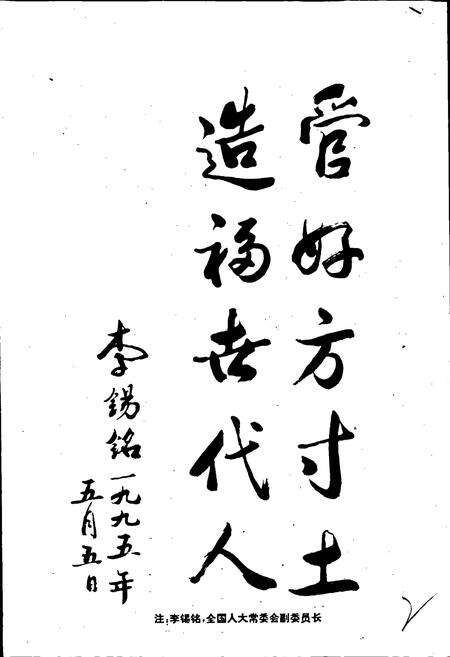 管好方寸土
造福世代人
李锡铭一九九五年
五月五日
注:李锡铭,全国人大常委会副委员长